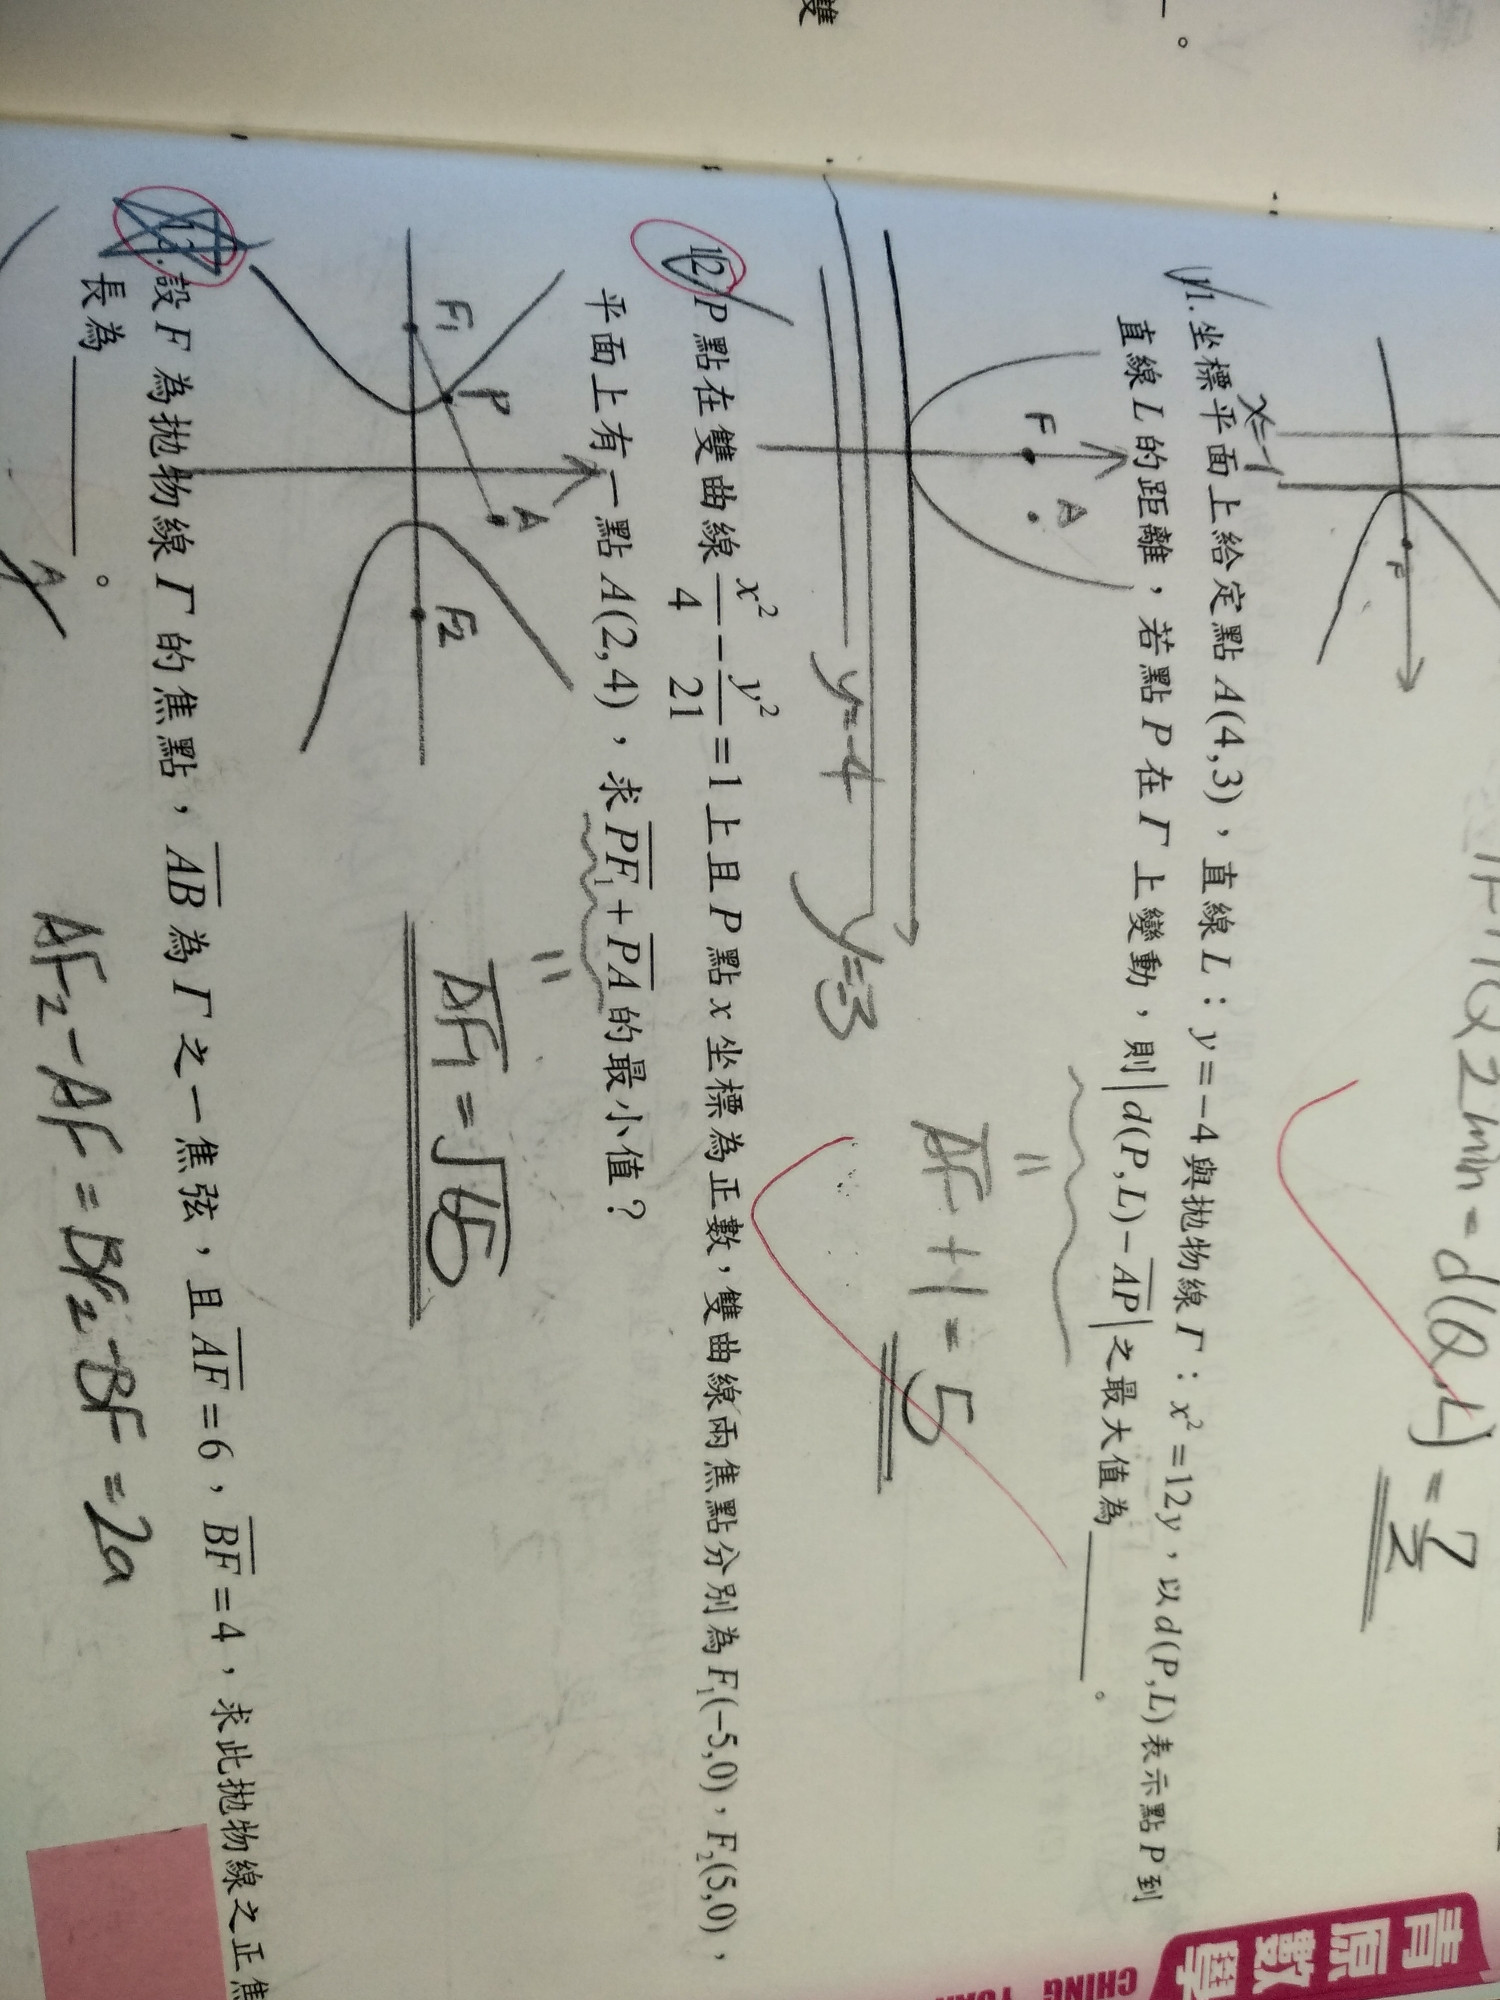 雙
。
F
Q2min = d(Q,L) = 7/2
x=-1
11.坐標平面上給定點A(4,3)，直線L：y=-4與拋物線Γ：x²=12y，以d(P,L)表示點P到
直線L的距離，若點P在Γ上變動，則|d(P,L)-AP|之最大值為______。
F A
=
AF+1=5
y=-4
y=-3
12 P點在雙曲線x²/4-y²/21=1上且P點x坐標為正數，雙曲線兩焦點分別為F₁(-5,0)，F₂(5,0)，
平面上有一點A(2,4)，求PF₁+PA的最小值？
=
F1 P A F2
AF1=√65
13.設F為拋物線Γ的焦點，AB為Γ之一焦弦，且AF=6，BF=4，求此拋物線之正焦
長為______。
AF2-AF=BF2-BF=2a
A
青原數學
CHING